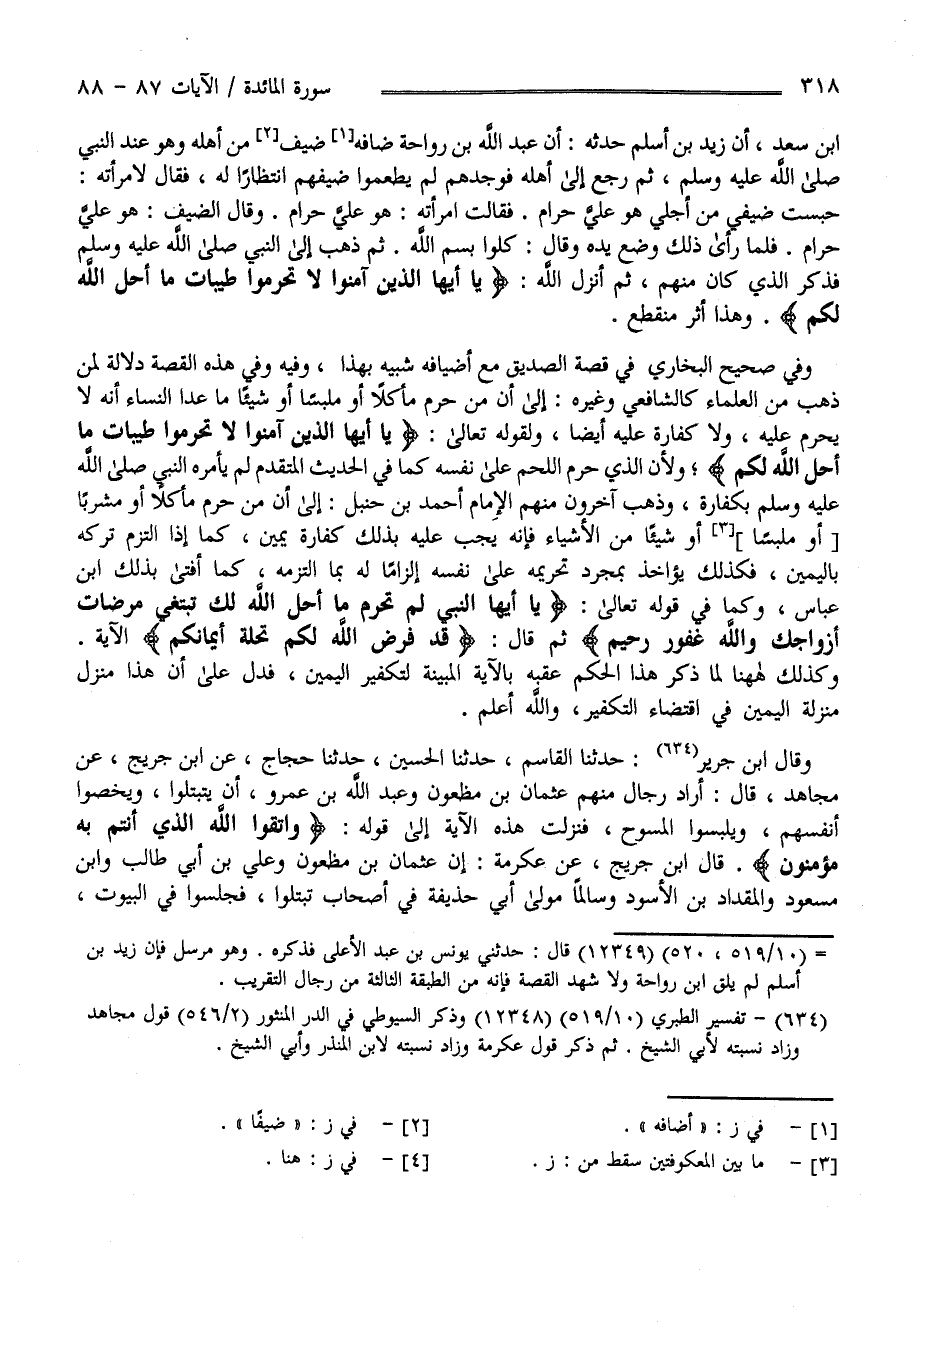 ٣١٨ سورة المائدة / الآيات ٨٧ - ٨٨
ابن سعد ، أن زيد بن أسلم حدثه : أن عبد اللَّه بن رواحة ضافه[١] ضيف[٢] من أهله وهو عند النبي
صلىٰ اللَّه عليه وسلم ، ثم رجع إلىٰ أهله فوجدهم لم يطعموا ضيفهم انتظارًا له ، فقال لامرأته :
حبست ضيفي من أجلي هو عليَّ حرام . فقالت امرأته : هو عليَّ حرام . وقال الضيف : هو عليَّ
حرام . فلما رأىٰ ذلك وضع يده وقال : كلوا بسم اللَّه . ثم ذهب إلىٰ النبي صلىٰ اللَّه عليه وسلم
فذكر الذي كان منهم ، ثم أنزل اللَّه : ﴿ يا أيها الذين آمنوا لا تحرموا طيبات ما أحل اللَّه
لكم ﴾ . وهذا أثر منقطع .
وفي صحيح البخاري في قصة الصديق مع أضيافه شبيه بهذا ، وفيه وفي هذه القصة دلالة لمن
ذهب من العلماء كالشافعي وغيره : إلىٰ أن من حرم مأكلًا أو ملبسًا أو شيئًا ما عدا النساء أنه لا
يحرم عليه ، ولا كفارة عليه أيضا ، ولقوله تعالىٰ : ﴿ يا أيها الذين آمنوا لا تحرموا طيبات ما
أحل اللَّه لكم ﴾ ؛ ولأن الذي حرم اللحم علىٰ نفسه كما في الحديث المتقدم لم يأمره النبي صلىٰ اللَّه
عليه وسلم بكفارة ، وذهب آخرون منهم الإمام أحمد بن حنبل : إلىٰ أن من حرم مأكلًا أو مشربًا
[ أو ملبسًا ][٣] أو شيئًا من الأشياء فإنه يجب عليه بذلك كفارة يمين ، كما إذا التزم تركه
باليمين ، فكذلك يؤاخذ بمجرد تحريمه علىٰ نفسه إلزامًا له بما التزمه ، كما أفتىٰ بذلك ابن
عباس ، وكما في قوله تعالىٰ : ﴿ يا أيها النبي لم تحرم ما أحل اللَّه لك تبتغي مرضات
أزواجك واللَّه غفور رحيم ﴾ ثم قال : ﴿ قد فرض اللَّه لكم تحلة أيمانكم ﴾ الآية .
وكذلك هٰهنا لما ذكر هذا الحكم عقبه بالآية المبينة لتكفير اليمين ، فدل علىٰ أن هذا منزل
منزلة اليمين في اقتضاء التكفير، واللَّه أعلم .
وقال ابن جرير(٦٣٤) : حدثنا القاسم ، حدثنا الحسين ، حدثنا حجاج ، عن ابن جريج ، عن
مجاهد ، قال : أراد رجال منهم عثمان بن مظعون وعبد اللَّه بن عمرو ، أن يتبتلوا ، ويخصوا
أنفسهم ، ويلبسوا المسوح ، فنزلت هذه الآية إلىٰ قوله : ﴿ واتقوا اللَّه الذي أنتم به
مؤمنون ﴾ . قال ابن جريج ، عن عكرمة : إن عثمان بن مظعون وعلي بن أبي طالب وابن
مسعود والمقداد بن الأسود وسالمًا مولىٰ أبي حذيفة في أصحاب تبتلوا ، فجلسوا في البيوت ،
= (٥١٩/١٠ ، ٥٢٠) (١٢٣٤٩) قال : حدثني يونس بن عبد الأعلى فذكره . وهو مرسل فإن زيد بن
أسلم لم يلق ابن رواحة ولا شهد القصة فإنه من الطبقة الثالثة من رجال التقريب .
(٦٣٤) - تفسير الطبري (٥١٩/١٠) (١٢٣٤٨) وذكر السيوطي في الدر المنثور (٥٤٦/٢) قول مجاهد
وزاد نسبته لأبي الشيخ . ثم ذكر قول عكرمة وزاد نسبته لابن المنذر وأبي الشيخ .
[١] - في ز : « أضافه » . [٢] - في ز : « ضيفًا » .
[٣] - ما بين المعكوفتين سقط من : ز . [٤] - في ز : هنا .